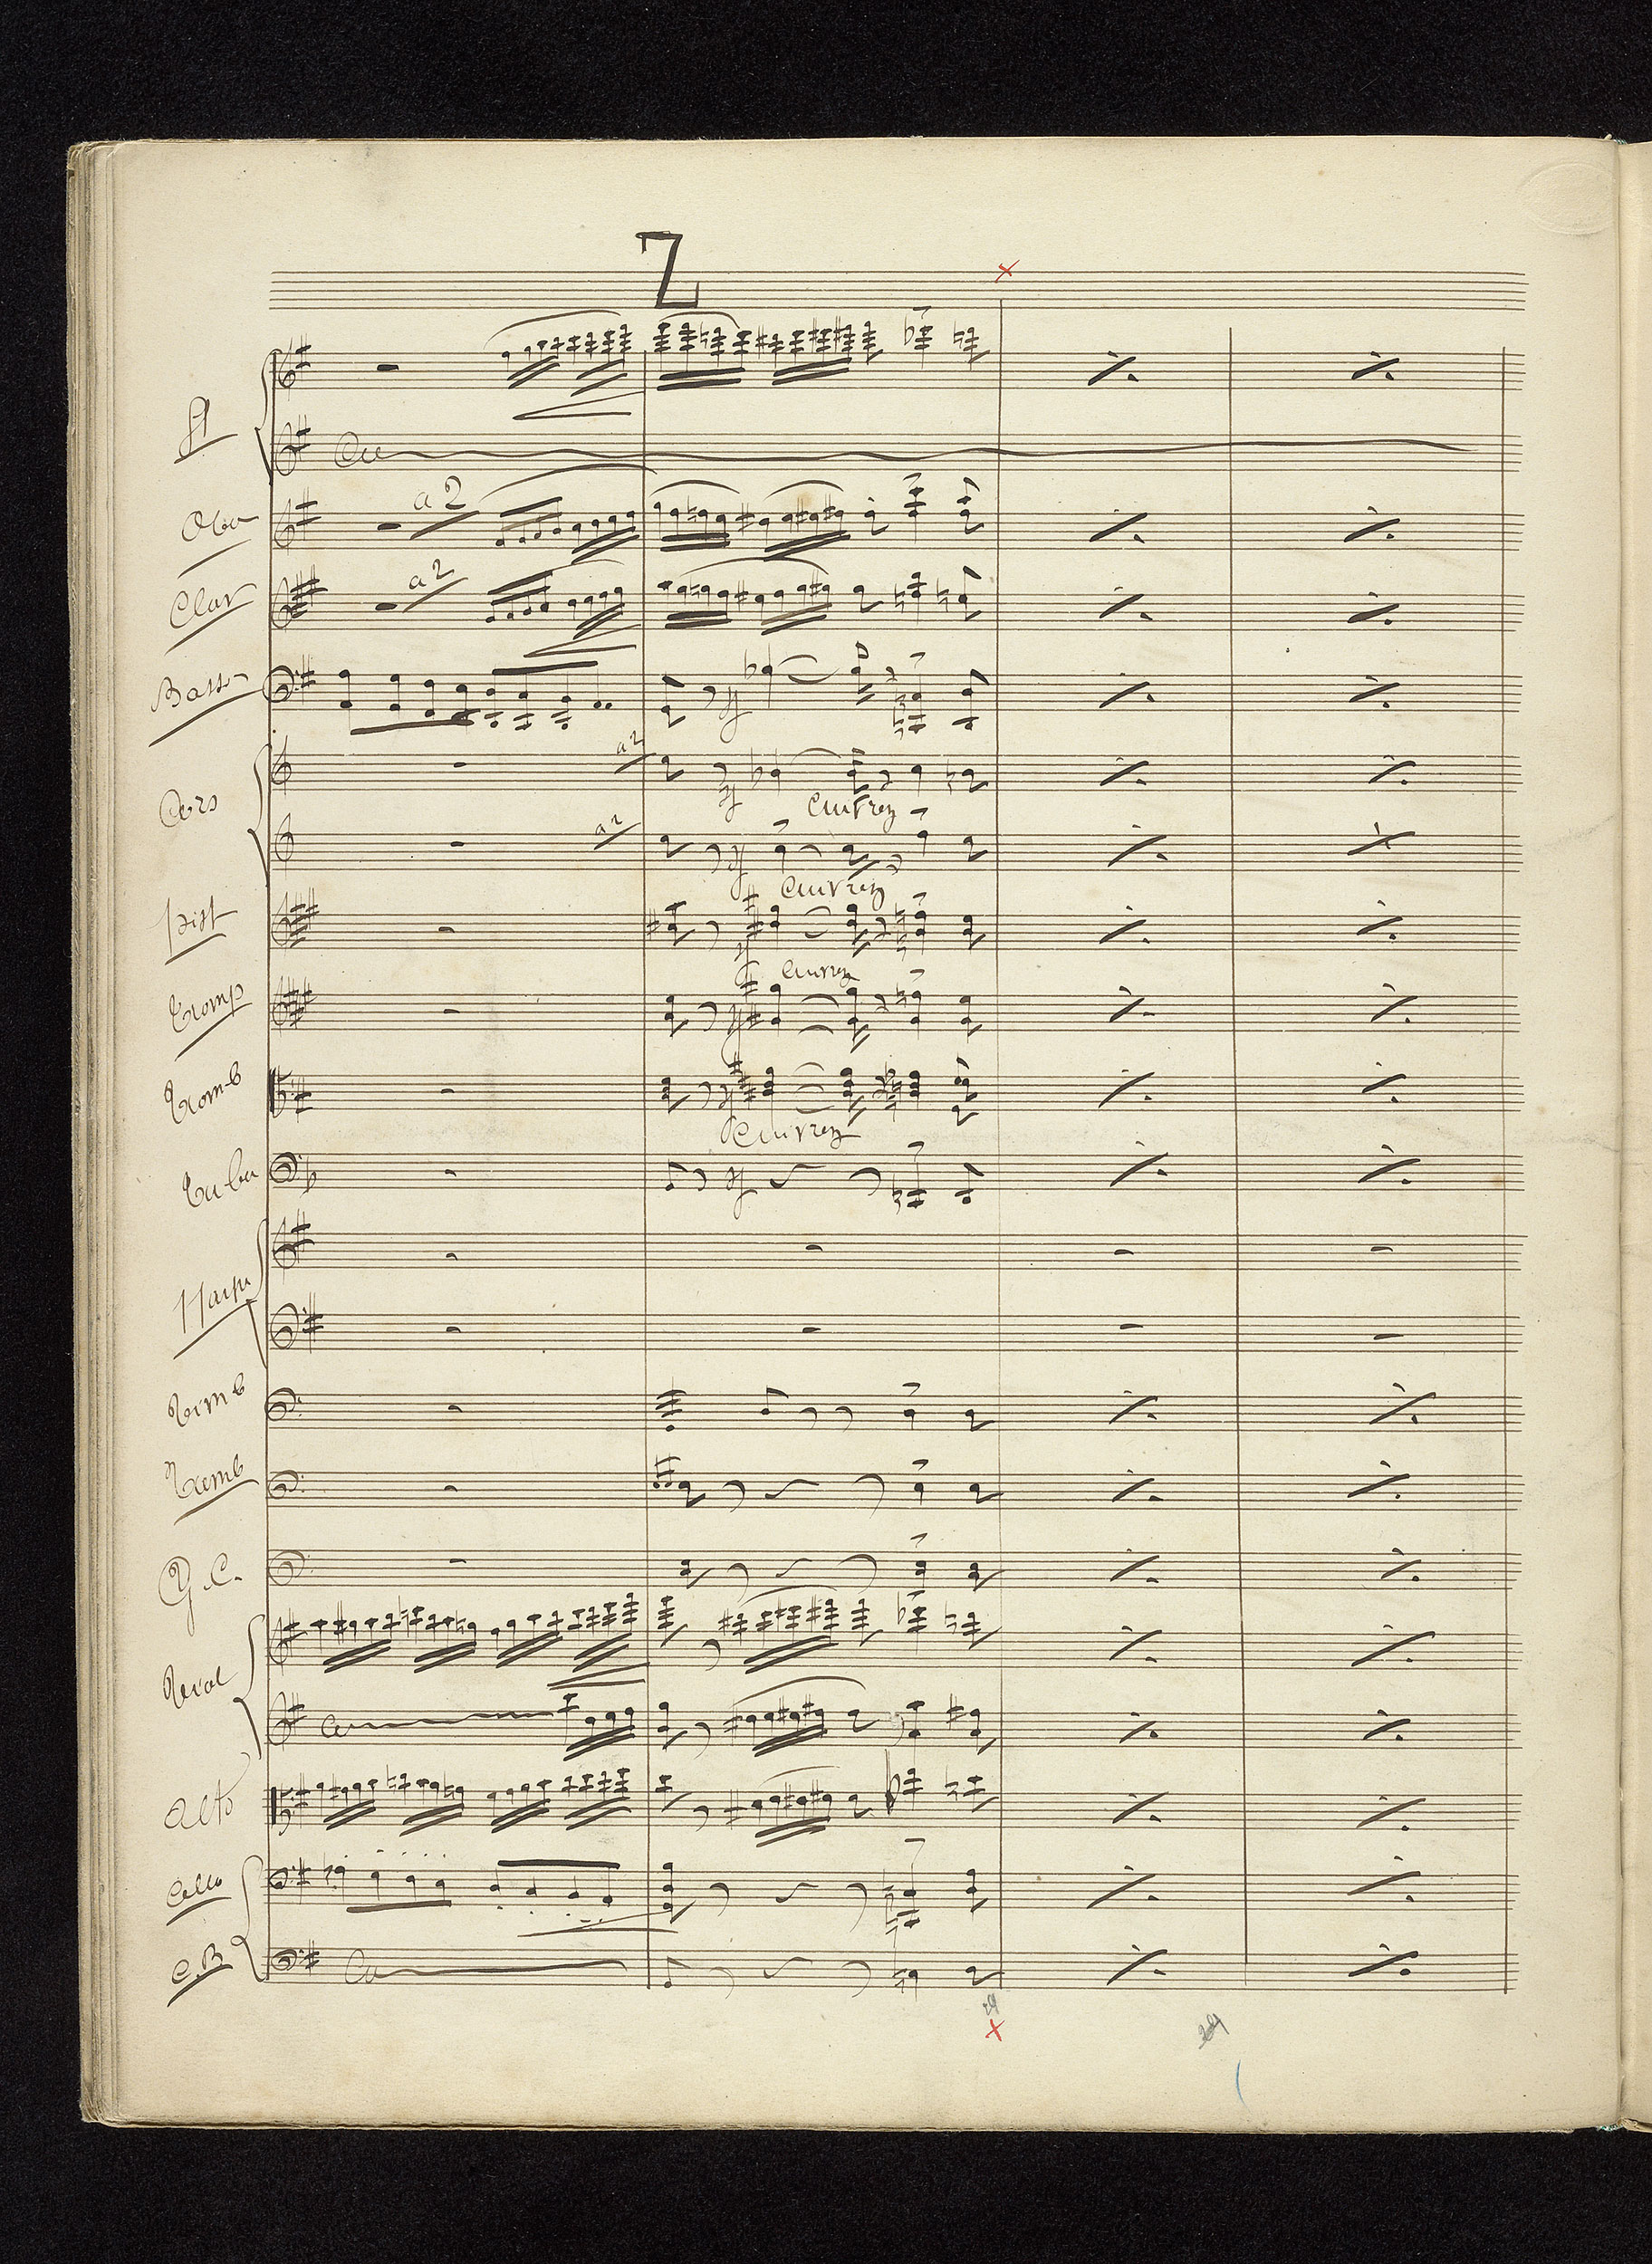 Z
Fl
Co
a 2
Obo
a 2
Clar
Basson
a 2
Cors
Cuivrez
a 2
Cuivrez
Pist
Cuivrez
Tromp
Tromb
Cuivrez
Tuba
Harpe
Timb
Tamb
G.C.
Viol
Co
Alto
Cello
C.B
Co